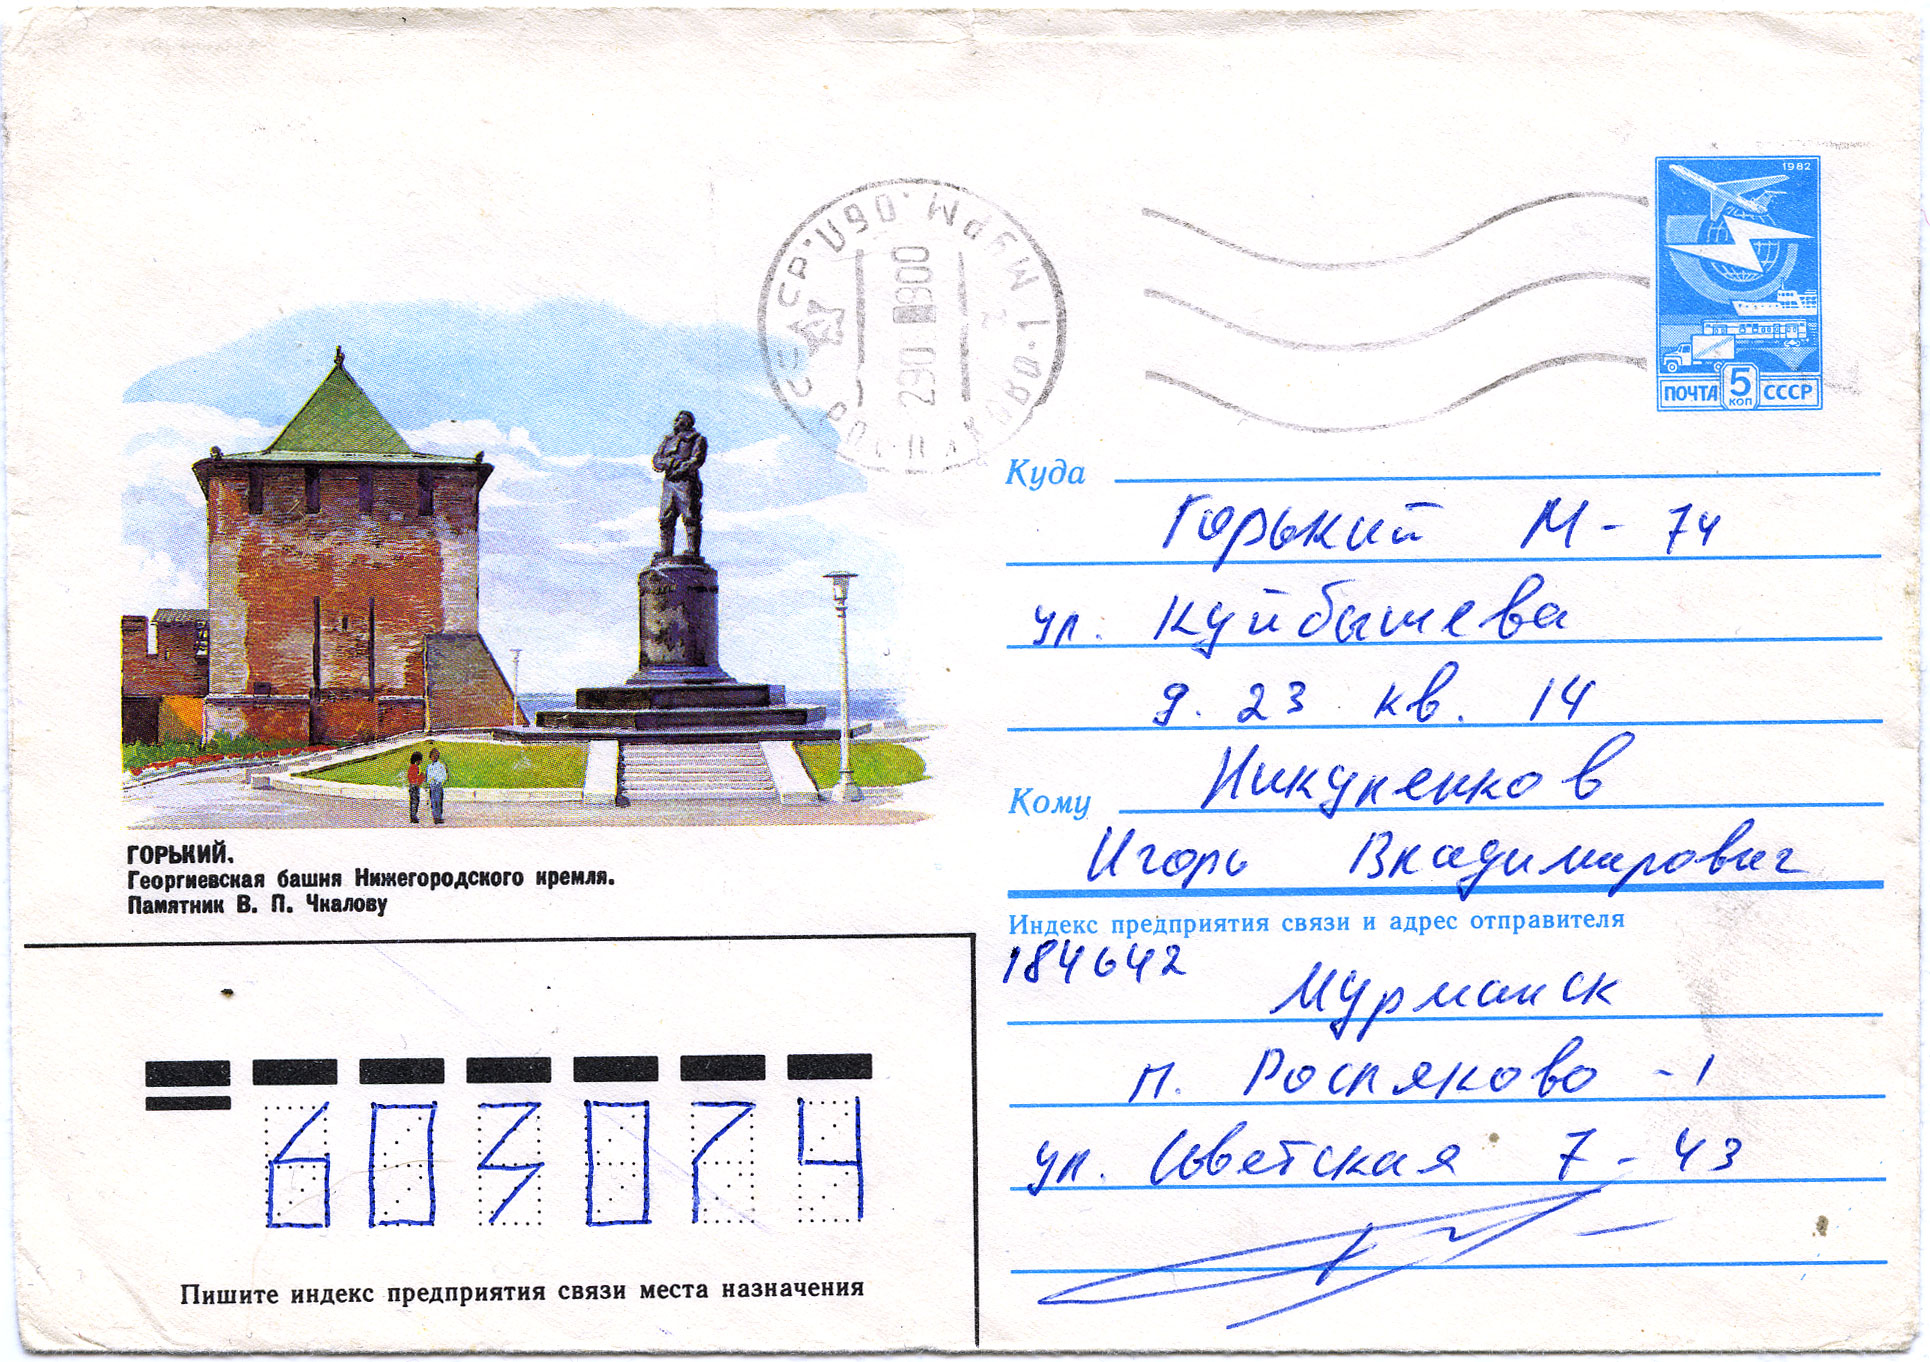 1982
ПОЧТА 5 КОП СССР
Куда
Горький М-74
ул. Куйбышева
д. 23 кв. 14
Кому
Игорь Владимирович
Индекс предприятия связи и адрес отправителя
184642
Мурманск
п. Росляково -1
ул. Советская 7-43
ГОРЬКИЙ.
Георгиевская башня Нижегородского кремля.
Памятник В. П. Чкалову
603074
Пишите индекс предприятия связи места назначения